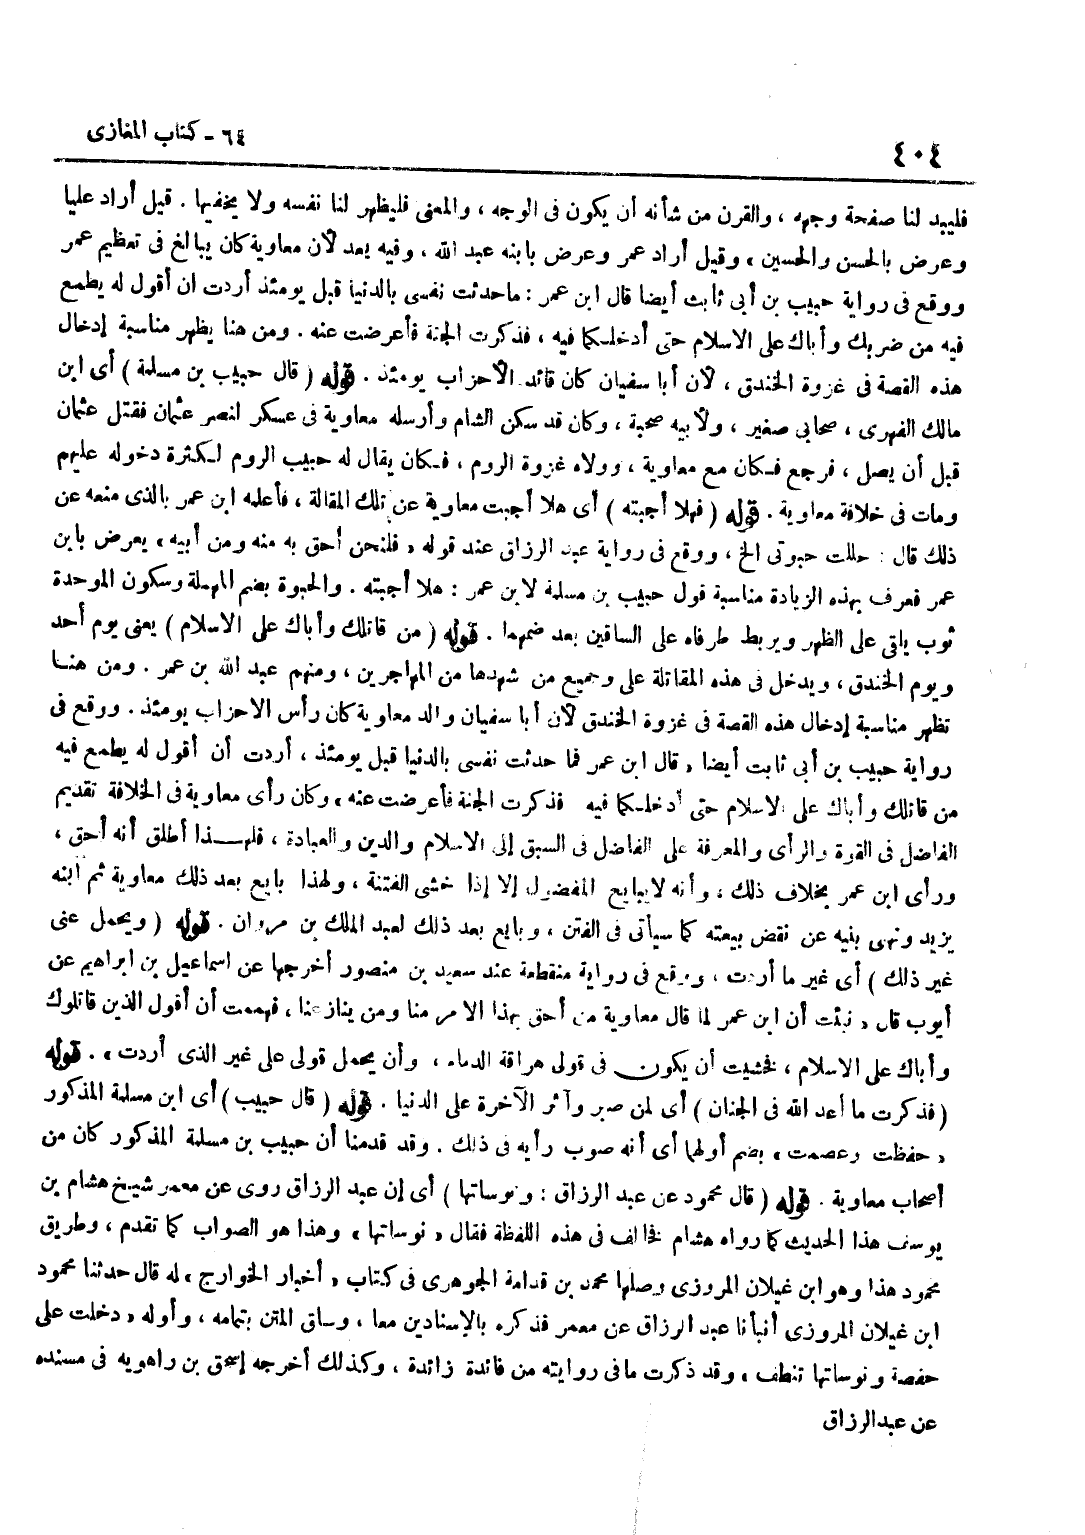 ٤٠٤
٦٤ - كتاب المغازى
فليبد لنا صفحة وجهه ، والقرن من شأنه أن يكون فى الوجه ، والمعنى فليظهر لنا نفسه ولا يخفيها . قيل أراد عليا
وعرض بالحسن والحسين ، وقيل أراد عمر وعرض بابنه عبد الله ، وفيه بعد لأن معاوية كان يبالغ فى تعظيم عمر
ووقع فى رواية حبيب بن أبى ثابت أيضا قال ابن عمر : ماحدثت نفسى بالدنيا قبل يومئذ أردت ان أقول له يطمع
فيه من ضربك وأباك على الاسلام حتى أدخلكما فيه ، فذكرت الجنة فأعرضت عنه . ومن هنا يظهر مناسبة إدخال
هذه القصة فى غزوة الخندق ، لأن أبا سفيان كان قائد الأحزاب يومئذ . قوله ( قال حبيب بن مسلمة ) أى ابن
مالك الفهرى ، صحابى صغير ، ولأبيه صحبة ، وكان قد سكن الشام وأرسله معاوية فى عسكر لنصر عثمان فقتل عثمان
قبل أن يصل ، فرجع فكان مع معاوية ، وولاه غزوة الروم ، فكان يقال له حبيب الروم لكثرة دخوله عليهم
ومات فى خلافة معاوية . قوله ( فهلا أجبته ) أى هلا أجبت معاوية عن تلك المقالة ، فأعلمه ابن عمر بالذى منعه عن
ذلك قال : حللت حبوتى الخ ، ووقع فى رواية عبد الرزاق عند قوله « فلنحن أحق به منه ومن أبيه ، يعرض بابن
عمر فعرف بهذه الزيادة مناسبة قول حبيب بن مسلمة لابن عمر : هلا أجبته . والحبوة بضم المهملة وسكون الموحدة
ثوب يلقى على الظهر ويربط طرفاه على الساقين بعد ضمهما . قوله ( من قاتلك وأباك على الاسلام ) يعنى يوم أحد
ويوم الخندق ، ويدخل فى هذه المقاتلة على وجميع من شهدها من المهاجرين ، ومنهم عبد الله بن عمر . ومن هنا
تظهر مناسبة إدخال هذه القصة فى غزوة الخندق لأن أبا سفيان والد معاوية كان رأس الاحزاب يومئذ . ووقع فى
رواية حبيب بن أبى ثابت أيضا « قال ابن عمر فما حدثت نفسى بالدنيا قبل يومئذ ، أردت أن أقول له يطمع فيه
من قاتلك وأباك على الاسلام حتى أدخلكما فيه فذكرت الجنة فأعرضت عنه ، وكان رأى معاوية فى الخلافة تقديم
الفاضل فى القوة والرأى والمعرفة على الفاضل فى السبق إلى الاسلام والدين والعبادة ، فلهذا أطلق أنه أحق ،
ورأى ابن عمر بخلاف ذلك ، وأنه لايبايع المفضول إلا إذا خشى الفتنة ، ولهذا بايع بعد ذلك معاوية ثم ابنه
يزيد ونهى بنيه عن نقض بيعته كما سيأتى فى الفتن ، وبايع بعد ذلك لعبد الملك بن مروان . قوله ( ويحمل عنى
غير ذلك ) أى غير ما أردت ، ووقع فى رواية منقطعة عند سعيد بن منصور أخرجها عن اسماعيل بن ابراهيم عن
أيوب قال « نبئت أن ابن عمر لما قال معاوية من أحق بهذا الامر منا ومن ينازعنا ، فهممت أن أقول الذين قاتلوك
وأباك على الاسلام ، فخشيت أن يكون فى قولى هراقة الدماء ، وأن يحمل قولى على غير الذى أردت » . قوله
( فذكرت ما أعد الله فى الجنان ) أى لمن صبر وآثر الآخرة على الدنيا . قوله ( قال حبيب ) أى ابن مسلمة المذكور
« حفظت وعصمت » بضم أولهما أى أنه صوب رأيه فى ذلك . وقد قدمنا أن حبيب بن مسلمة المذكور كان من
أصحاب معاوية . قوله ( قال محمود عن عبد الرزاق : ونوساتها ) أى إن عبد الرزاق روى عن معمر شيخ هشام بن
يوسف هذا الحديث كما رواه هشام فخالف فى هذه اللفظة فقال « نوساتها » وهذا هو الصواب كما تقدم ، وطريق
محمود هذا وهو ابن غيلان المروزى وصلها محمد بن قدامة الجوهرى فى كتاب « أخبار الخوارج » له قال حدثنا محمود
ابن غيلان المروزى أنبأنا عبد الرزاق عن معمر فذكره بالإسنادين معا ، وساق المتن بتمامه ، وأوله « دخلت على
حفصة ونوساتها تنطف » وقد ذكرت مافى روايته من فائدة زائدة ، وكذلك أخرجه إسحق بن راهويه فى مسنده
عن عبد الرزاق